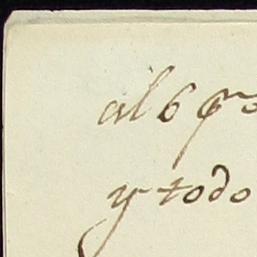 al 6
y todo